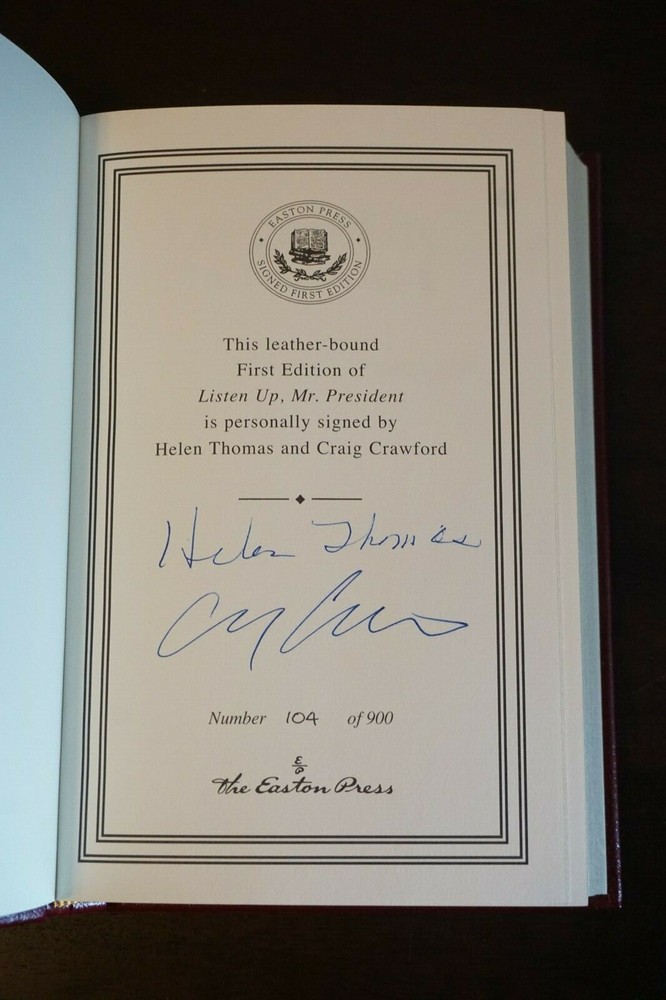 EASTON PRESS
SIGNED FIRST EDITION
This leather-bound
First Edition of
Listen Up, Mr. President
is personally signed by
Helen Thomas and Craig Crawford
Helen Thomas
Number 104 of 900
E/P
the Easton Press